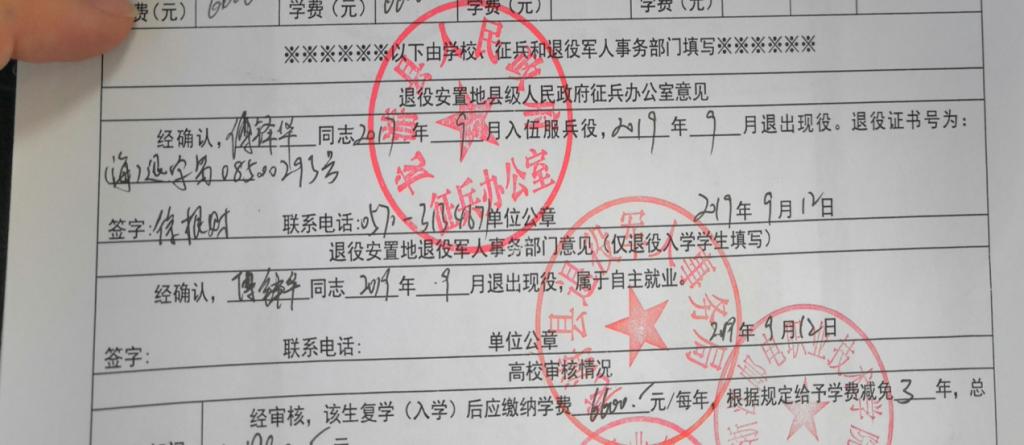 费（元） 6600 学费（元） 学费（元） 学费（元）
※※※※※※以下由学校、征兵和退役军人事务部门填写※※※※※※
退役安置地县级人民政府征兵办公室意见
经确认，傅锋华同志2017年9月入伍服兵役，2019年9月退出现役。退役证书号为：
（海）退字第08500293号
签字：徐根财 联系电话：057 单位公章 2019年9月12日
退役安置地退役军人事务部门意见（仅退役入学学生填写）
经确认，傅锋华同志2019年9月退出现役，属于自主就业。
签字： 联系电话： 单位公章 2019年9月12日
高校审核情况
经审核，该生复学（入学）后应缴纳学费6600.元/每年，根据规定给予学费减免3年，总
元
县人民政府
征兵办公室
县退役军人事务局
邮电职业技术学